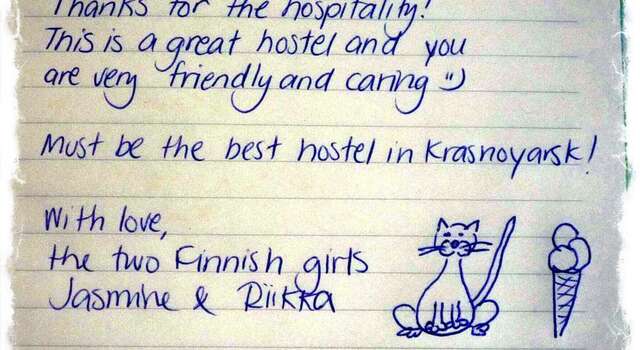 Thanks for the hospitality!
This is a great hostel and you
are very friendly and caring :)
Must be the best hostel in Krasnoyarsk!
With love,
the two Finnish girls
Jasmine & Riikka